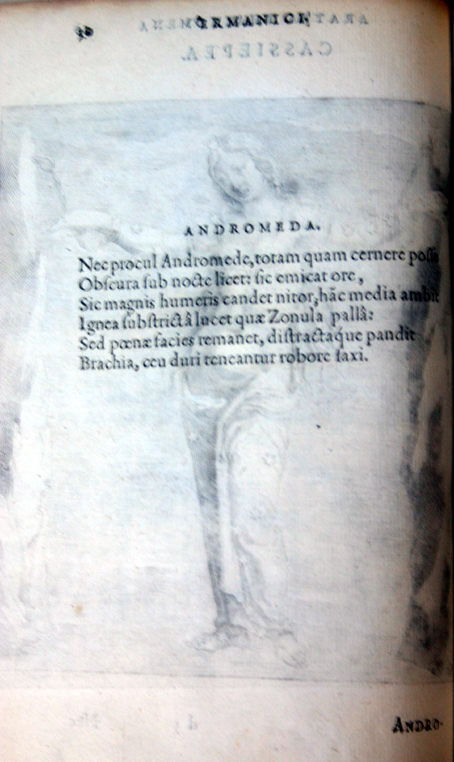 30 GERMANICI,
CASSIEPEA.
ANDROMEDA.
Nec procul Andromede, totam quam cernere possis
Obſcura ſub nocte licet: ſic emicat ore,
Sic magnis humeris candet nitor, hāc media ambit
Ignea ſubſtrictâ lucet quæ Zonula pallâ:
Sed pœnæ facies remanet, diſtractaque pandit
Brachia, ceu duri teneantur robore ſaxi.
ANDRO-